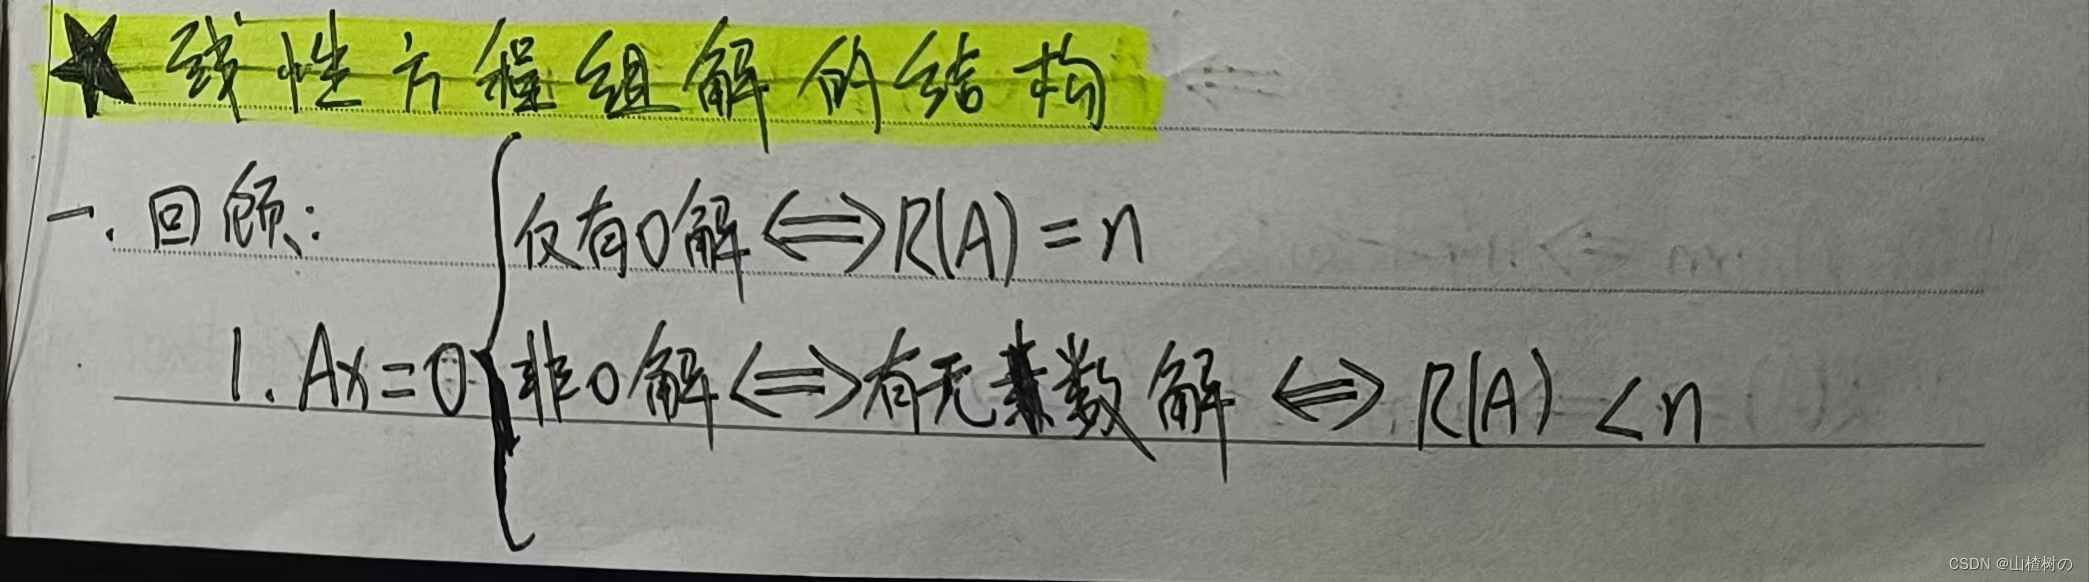 ★ 线性方程组解的结构
一. 回顾:
仅有0解⟺R(A)=n
1. Ax=0 { 非0解⟺有无数解⟺R(A)<n
CSDN @山楂树の